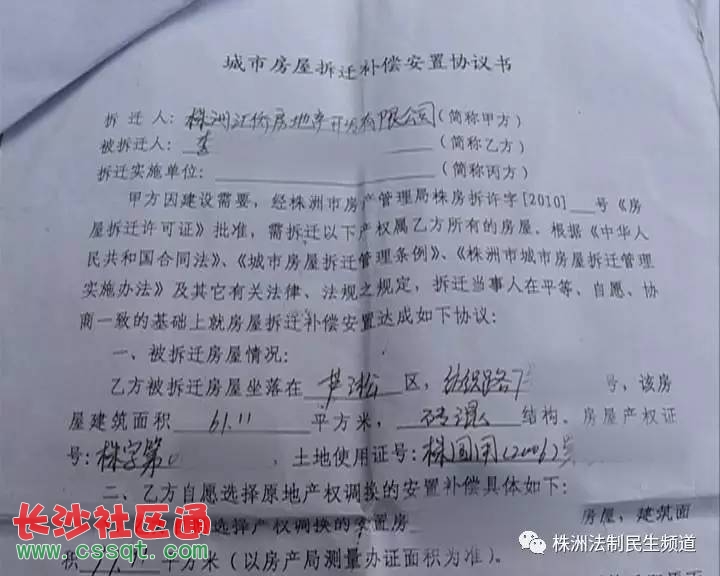 城市房屋拆迁补偿安置协议书
拆 迁 人：株洲江侨房地产开发有限公司(简称甲方)
被拆迁人：李 (简称乙方)
拆迁实施单位： (简称丙方)
甲方因建设需要，经株洲市房产管理局株房拆许字[2010] 号《房
屋拆迁许可证》批准，需拆迁以下产权属乙方所有的房屋。根据《中华人
民共和国合同法》、《城市房屋拆迁管理条例》、《株洲市城市房屋拆迁管理
实施办法》及其它有关法律、法规之规定，拆迁当事人在平等、自愿、协
商一致的基础上就房屋拆迁补偿安置达成如下协议：
一、被拆迁房屋情况：
乙方被拆迁房屋坐落在 芦淞 区，纺织路 号，该房
屋建筑面积 61.11 平方米，砖混 结构、房屋产权证
号：株字第 ，土地使用证号：株国用(2006)
二、乙方自愿选择原地产权调换的安置补偿具体如下：
选择产权调换的安置房 房屋，建筑面
积 平方米（以房产局测量办证面积为准）。
长沙社区通
www.cssqt.com
株洲法制民生频道